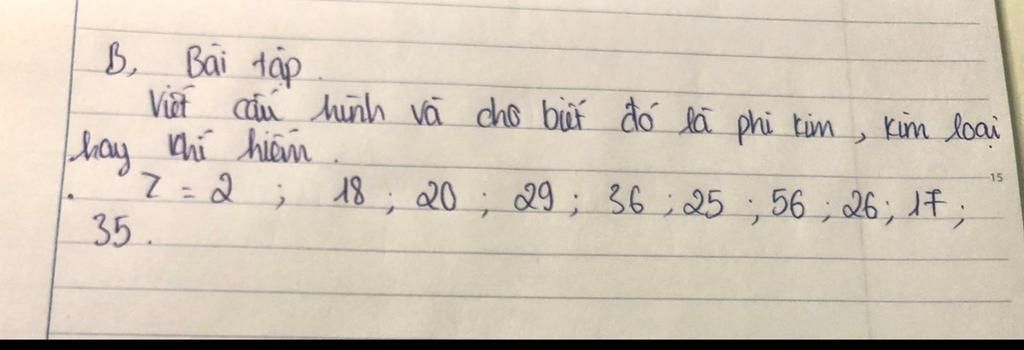 B, Bài tập.
Viết cấu hình và cho biết đó là phi kim, kim loại
hay khí hiếm.
15
Z = 2 ; 18 ; 20 ; 29 ; 36 ; 25 ; 56 ; 26 ; 17 ;
35.